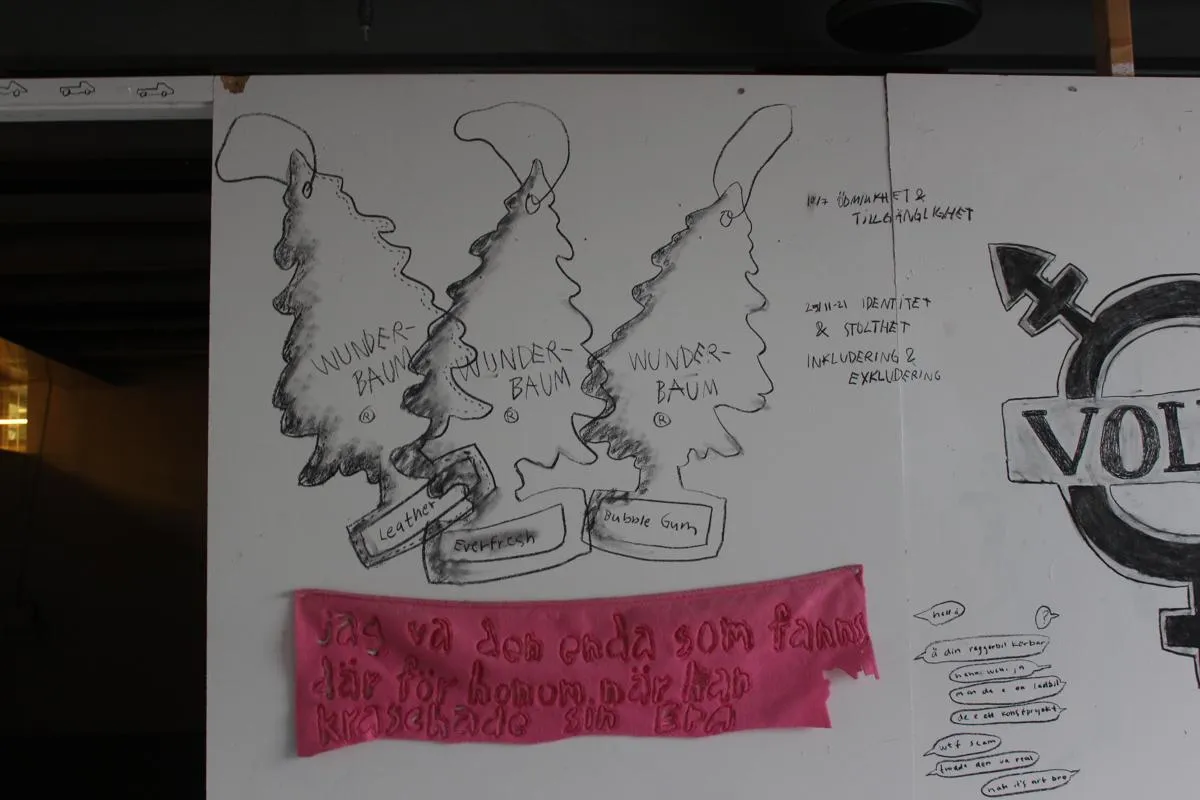 WUNDER-
BAUM
®
Leather
WUNDER-
BAUM
®
Everfresh
WUNDER-
BAUM
®
Bubble Gum
jag va den enda som fanns
där för honom när han
kraschade sin Era
ÖDMJUKHET &
TILLGÄNGLIGHET
IDENTITET
& STOLTHET
INKLUDERING &
EXKLUDERING
VOL
hallå
?
ä din raggarbil körbar
men de e en lastbil
de e ett konstprojekt
wtf scam
trodde den va real
nah it's art bro